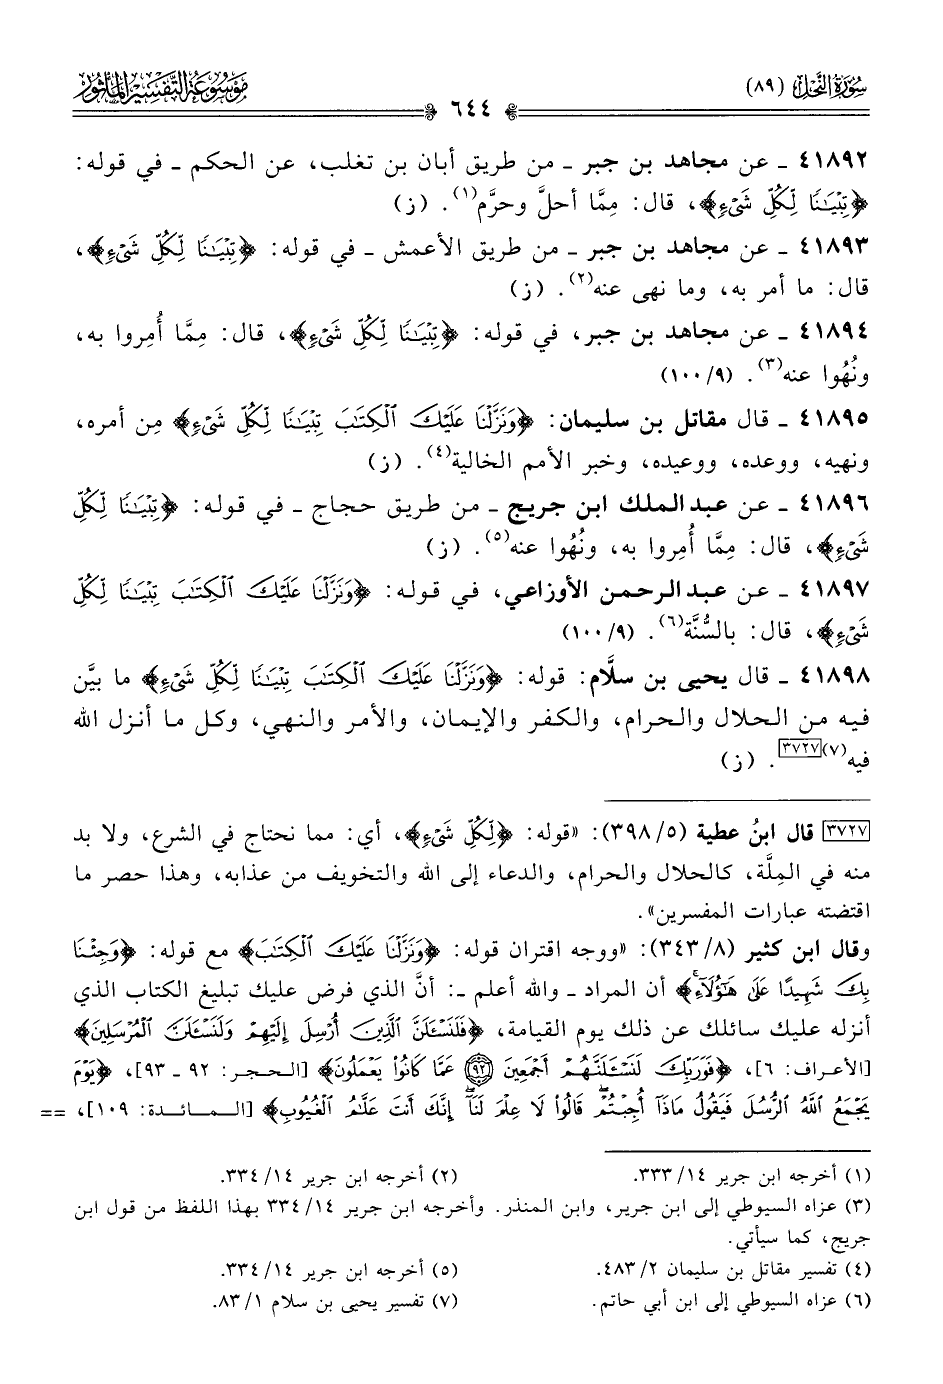 سُورَةُ النَّحْلِ (٨٩)
٦٤٤
مَوْسُوعَةُ التَّفْسِيرِ المَأْثُور
٤١٨٩٢ ـ عن مجاهد بن جبر ـ من طريق أبان بن تغلب، عن الحكم ـ في قوله:
﴿تِبْيَٰنًا لِّكُلِّ شَىْءٍ﴾، قال: مِمَّا أحلَّ وحرَّم(١). (ز)
٤١٨٩٣ ـ عن مجاهد بن جبر ـ من طريق الأعمش ـ في قوله: ﴿تِبْيَٰنًا لِّكُلِّ شَىْءٍ﴾،
قال: ما أمر به، وما نهى عنه(٢). (ز)
٤١٨٩٤ ـ عن مجاهد بن جبر، في قوله: ﴿تِبْيَٰنًا لِّكُلِّ شَىْءٍ﴾، قال: مِمَّا أُمِروا به،
ونُهُوا عنه(٣). (٩/١٠٠)
٤١٨٩٥ ـ قال مقاتل بن سليمان: ﴿وَنَزَّلْنَا عَلَيْكَ ٱلْكِتَٰبَ تِبْيَٰنًا لِّكُلِّ شَىْءٍ﴾ مِن أمره،
ونهيه، ووعده، ووعيده، وخبر الأمم الخالية(٤). (ز)
٤١٨٩٦ ـ عن عبد الملك ابن جريج ـ من طريق حجاج ـ في قوله: ﴿تِبْيَٰنًا لِّكُلِّ
شَىْءٍ﴾، قال: مِمَّا أُمِروا به، ونُهُوا عنه(٥). (ز)
٤١٨٩٧ ـ عن عبد الرحمن الأوزاعي، في قوله: ﴿وَنَزَّلْنَا عَلَيْكَ ٱلْكِتَٰبَ تِبْيَٰنًا لِّكُلِّ
شَىْءٍ﴾، قال: بالسُّنَّة(٦). (٩/١٠٠)
٤١٨٩٨ ـ قال يحيى بن سلَّام: قوله: ﴿وَنَزَّلْنَا عَلَيْكَ ٱلْكِتَٰبَ تِبْيَٰنًا لِّكُلِّ شَىْءٍ﴾ ما بيَّن
فيه من الحلال والحرام، والكفر والإيمان، والأمر والنهي، وكل ما أنزل الله
فيه(٧)[٣٧٢٧]. (ز)
[٣٧٢٧] قال ابنُ عطية (٥/٣٩٨): «قوله: ﴿لِّكُلِّ شَىْءٍ﴾، أي: مما نحتاج في الشرع، ولا بد
منه في المِلَّة، كالحلال والحرام، والدعاء إلى الله والتخويف من عذابه، وهذا حصر ما
اقتضته عبارات المفسرين».
وقال ابن كثير (٨/٣٤٣): «ووجه اقتران قوله: ﴿وَنَزَّلْنَا عَلَيْكَ ٱلْكِتَٰبَ﴾ مع قوله: ﴿وَجِئْنَا
بِكَ شَهِيدًا عَلَىٰ هَٰٓؤُلَآءِ﴾ أن المراد ـ والله أعلم ـ: أنَّ الذي فرض عليك تبليغ الكتاب الذي
أنزله عليك سائلك عن ذلك يوم القيامة، ﴿فَلَنَسْـَٔلَنَّ ٱلَّذِينَ أُرْسِلَ إِلَيْهِمْ وَلَنَسْـَٔلَنَّ ٱلْمُرْسَلِينَ﴾
[الأعراف: ٦]، ﴿فَوَرَبِّكَ لَنَسْـَٔلَنَّهُمْ أَجْمَعِينَ (٩٢) عَمَّا كَانُوا۟ يَعْمَلُونَ﴾ [الحجر: ٩٢ ـ ٩٣]، ﴿يَوْمَ
يَجْمَعُ ٱللَّهُ ٱلرُّسُلَ فَيَقُولُ مَاذَآ أُجِبْتُمْ ۖ قَالُوا۟ لَا عِلْمَ لَنَآ ۖ إِنَّكَ أَنتَ عَلَّٰمُ ٱلْغُيُوبِ﴾ [المـائـدة: ١٠٩]، ==
(١) أخرجه ابن جرير ١٤/ ٣٣٣.
(٢) أخرجه ابن جرير ١٤/ ٣٣٤.
(٣) عزاه السيوطي إلى ابن جرير، وابن المنذر. وأخرجه ابن جرير ١٤/ ٣٣٤ بهذا اللفظ من قول ابن
جريج، كما سيأتي.
(٤) تفسير مقاتل بن سليمان ٢/ ٤٨٣.
(٥) أخرجه ابن جرير ١٤/ ٣٣٤.
(٦) عزاه السيوطي إلى ابن أبي حاتم.
(٧) تفسير يحيى بن سلام ١/ ٨٣.